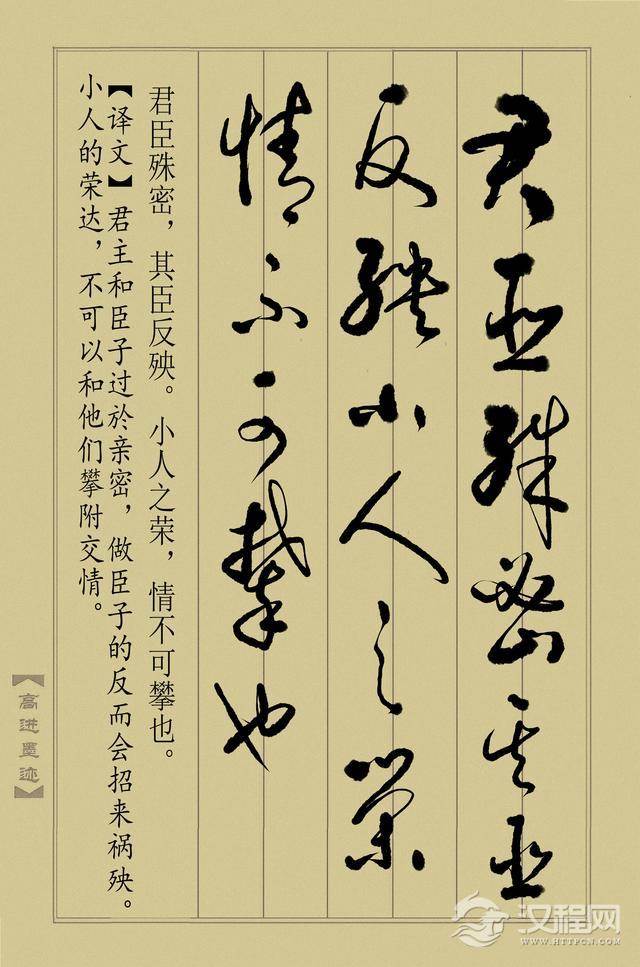 君臣殊密其臣
反殃小人之荣
情不可攀也
君臣殊密，其臣反殃。小人之荣，情不可攀也。
【译文】君主和臣子过於亲密，做臣子的反而会招来祸殃。
小人的荣达，不可以和他们攀附交情。
【高进墨迹】
汉程网
WWW.HTTPCN.COM